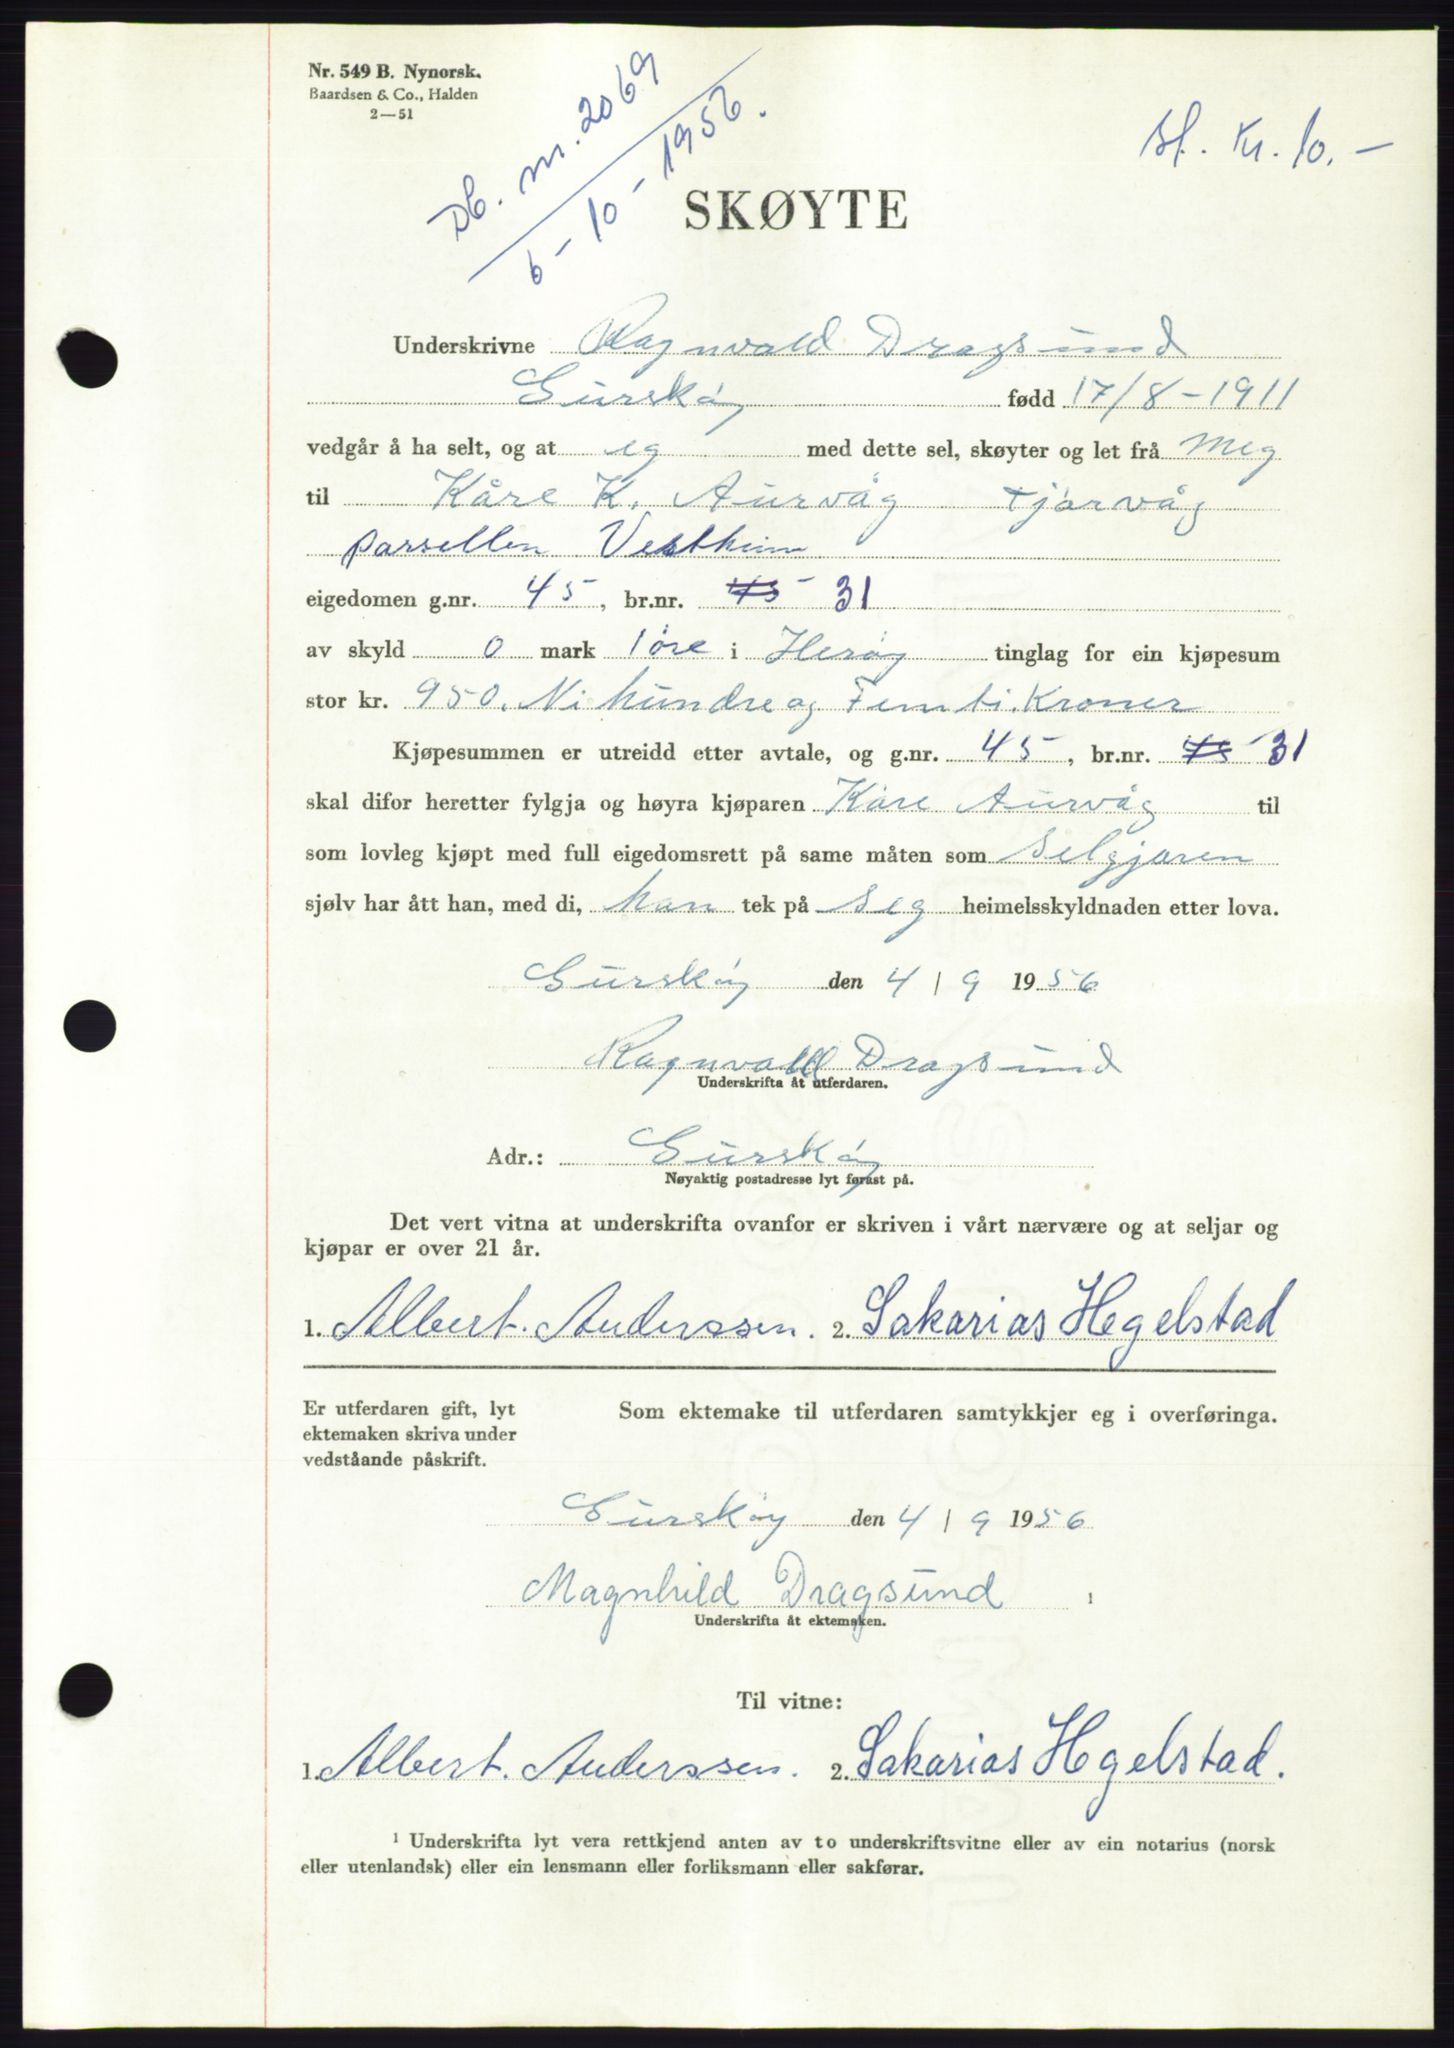 Nr. 549 B. Nynorsk.
Baardsen & Co., Halden
2—51
Db. nr. 2069
6-10-1956.
st. kr. 10.-
SKØYTE
Underskrivne Ragnvald Dragsund
Gurskøy fødd 17/8-1911
vedgår å ha selt, og at eg med dette sel, skøyter og let frå meg
til Kåre K. Aurvåg Tjørvåg
parsellen Vestheim
eigedomen g.nr. 45, br.nr. 45 31
av skyld 0 mark 1 øre i Herøy tinglag for ein kjøpesum
stor kr. 950. Ni hundre og Femti. Kroner
Kjøpesummen er utreidd etter avtale, og g.nr. 45, br.nr. 45 31
skal difor heretter fylgja og høyra kjøparen Kåre Aurvåg til
som lovleg kjøpt med full eigedomsrett på same måten som selgjaren
sjølv har ått han, med di, han tek på seg heimelsskyldnaden etter lova.
Gurskøy den 4/9 1956
Ragnvald Dragsund
Underskrifta åt utferdaren.
Adr.: Gurskøy
Nøyaktig postadresse lyt førast på.
Det vert vitna at underskrifta ovanfor er skriven i vårt nærvære og at seljar og
kjøpar er over 21 år.
1. Albert. Anderssen. 2. Sakarias Hegelstad
Er utferdaren gift, lyt
ektemaken skriva under
vedståande påskrift.
Som ektemake til utferdaren samtykkjer eg i overføringa.
Gurskøy den 4/9 1956
Magnhild Dragsund 1
Underskrifta åt ektemaken.
Til vitne:
1. Albert. Anderssen. 2. Sakarias Hegelstad.
1 Underskrifta lyt vera rettkjend anten av to underskriftsvitne eller av ein notarius (norsk
eller utenlandsk) eller ein lensmann eller forliksmann eller sakførar.